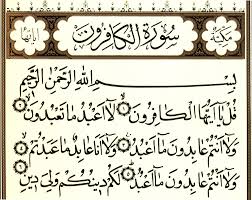 مكية سورة الكافرون آياتها
بِسْمِ اللهِ الرَّحْمٰنِ الرَّحِيمِ
قُلْ يَا أَيُّهَا الْكَافِرُونَ لَا أَعْبُدُ مَا تَعْبُدُونَ
وَلَا أَنْتُمْ عَابِدُونَ مَا أَعْبُدُ وَلَا أَنَا عَابِدٌ مَا عَبَدْتُمْ
وَلَا أَنْتُمْ عَابِدُونَ مَا أَعْبُدُ لَكُمْ دِينُكُمْ وَلِيَ دِينِ